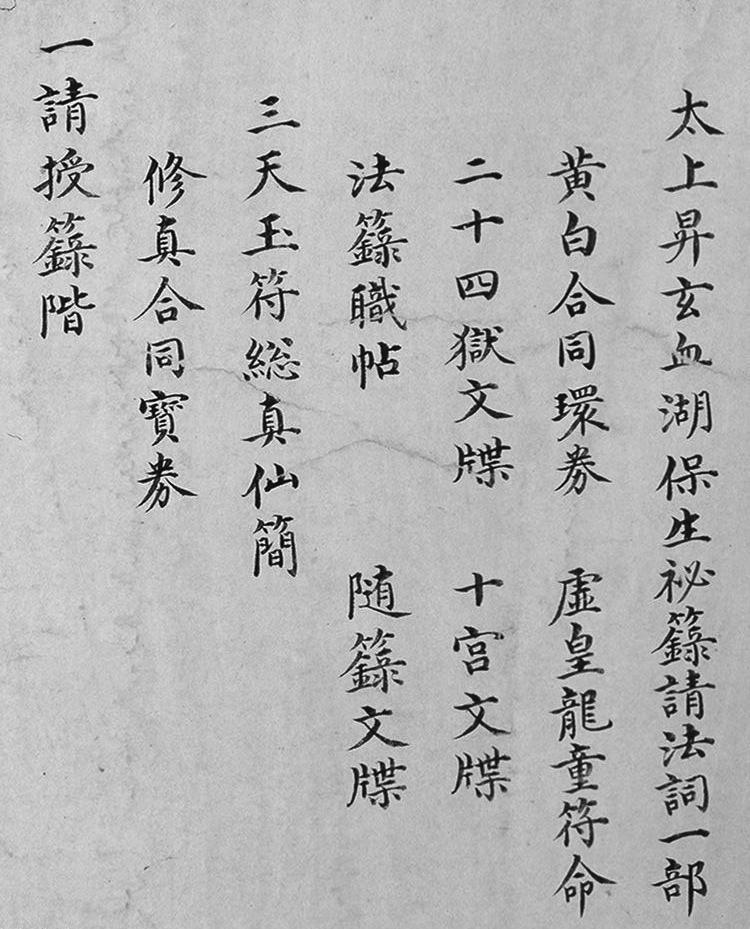 太上昇玄血湖保生祕籙請法詞一部
黃白合同環券 虛皇龍童符命
二十四獄文牒 十宮文牒
法籙職帖 随籙文牒
三天玉符総真仙簡
修真合同寶券
一請授籙階